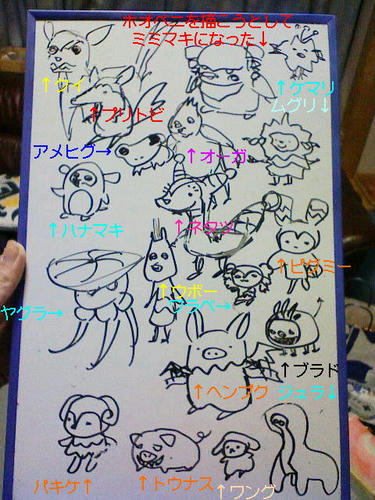 ホオベニを描こうとして
ミミマキになった↓
↑クイ
↑プリトビ
↑ケマリ
ムグリ↓
アメヒグ→
↑オーガ
↑ハナマキ
↑ネタツ
↑ピグミー
ヤグラ→
↑ウボー
ワラベ→
↑ブラド
↑ヘンプク
ジュラ↓
バキケ↑
↑トウナス
↑ワング